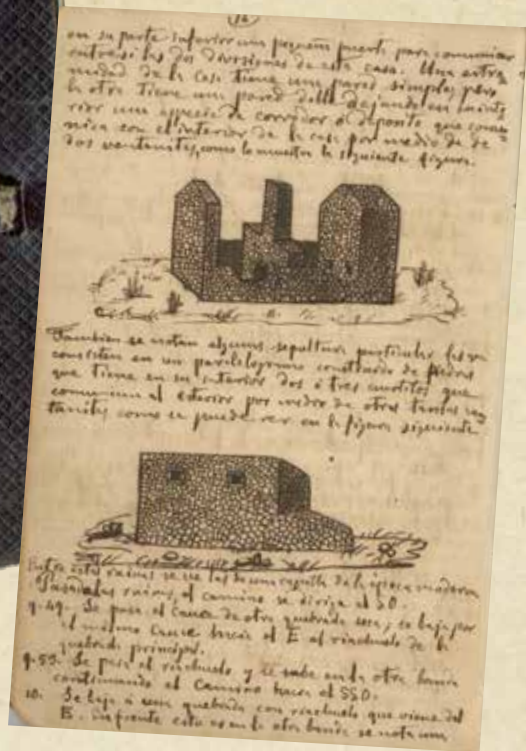 (16)
en su parte inferior un pequeña puerta para comunicar
entre si las dos divisiones de esta casa. Una
de la casa tiene una pared simple, pero
la otra tiene una pared doble dejando en
rior una especie de corredor ó deposito que
nica con el interior de la casa por medio de de
dos ventanitas, como lo muestra la siguiente figura.
Tambien se notan algunas sepulturas particulares
consisten en un construido de piedras
que tiene en su interior dos ó tres cuartitos que
comunican al exterior por medio de otras tantas ven
tanitas como se puede ver en la figura siguiente
Entre estas ruinas se ve las de una capilla de la época moderna
Pasadas las ruinas, el camino se dirige al SO.
9.49. Se pasa el cauce de otra quebrada seca, se baja por
el mismo cauce hacia el E al riachuelo de la
quebrada principal.
9.55. Se pasa el riachuelo y se sube en la otra banda
continuando el camino hacia el SSO.
10. Se baja á una quebrada con riachuelo que viene del
E. en la otra banda se nota una